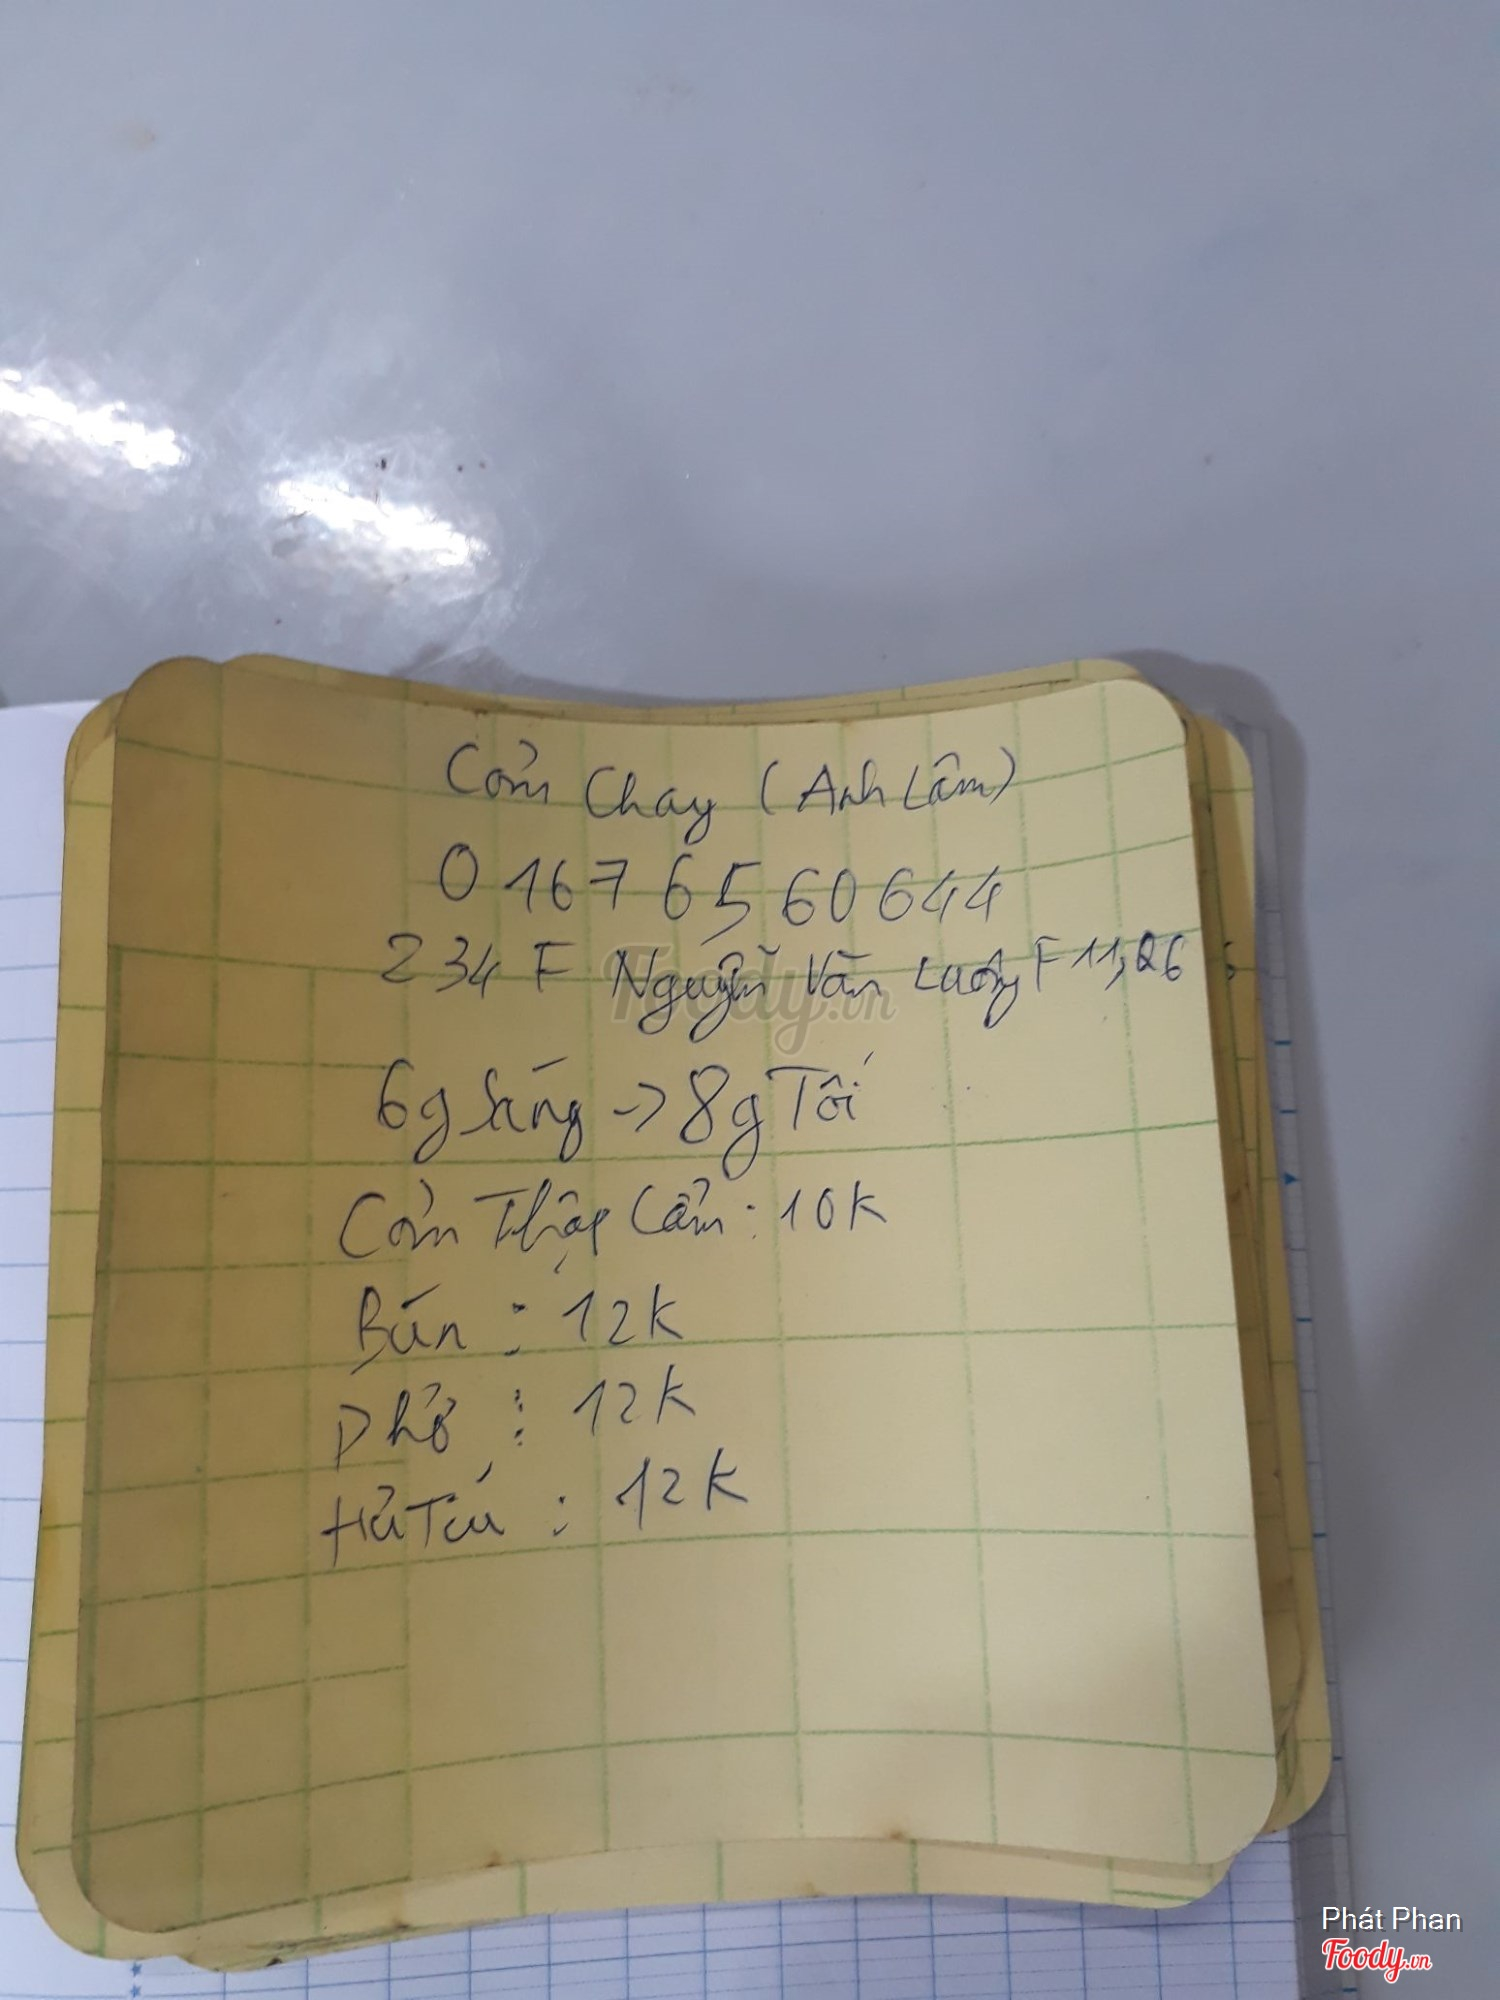 Cơm Chay (Anh Lâm)
0 167 6 5 60 644
234 F Nguyễn Văn Luông F 11, Q6
6g Sáng -> 8g Tối
Cơm Thập Cẩm : 10K
Bún : 12K
Phở : 12K
Hủ Tíu : 12K
Foody.vn
Phát Phan
Foody.vn